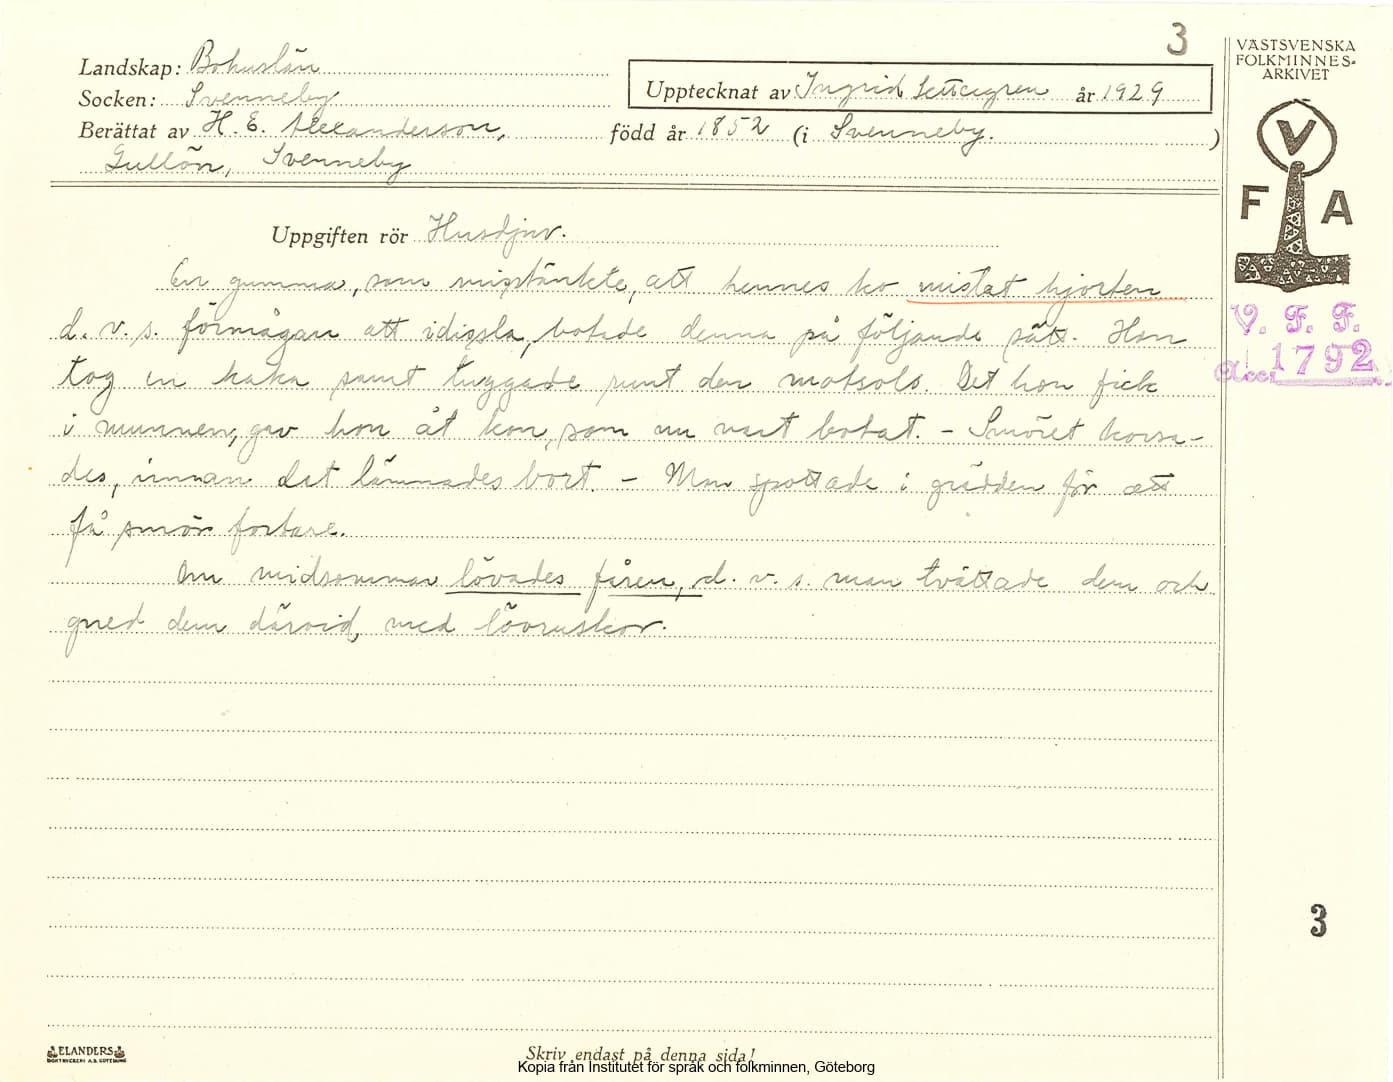 3
Landskap: Bohuslän
Socken: Svenneby
Upptecknat av Ingrid år 1929
Berättat av H. E. Alexanderson, född år 1852 (i Svenneby. )
Gullön, Svenneby
VÄSTSVENSKA
FOLKMINNES-
ARKIVET
V
F A
Uppgiften rör Husdjur.
En gumma, som misstänkte, att hennes ko mistat hjorten
d. v. s. förmågan att idissla, botade denna på följande sätt. Hon
tog en kaka samt tuggade runt den motsols. Det hon fick
i munnen, gav hon åt kon, som nu vart botat. – Smöret korsa-
des, innan det lämnades bort. – Man spottade i grädden för att
få smör fortare.
Om midsommar lövades fåren, d. v. s. man tvättade dem och
gned dem därvid, med lövruskor.
V. F. F.
Acc. 1792
3
ELANDERS
BOKTRYCKERI A.B. GÖTEBORG
Skriv endast på denna sida!
Kopia från Institutet för språk och folkminnen, Göteborg